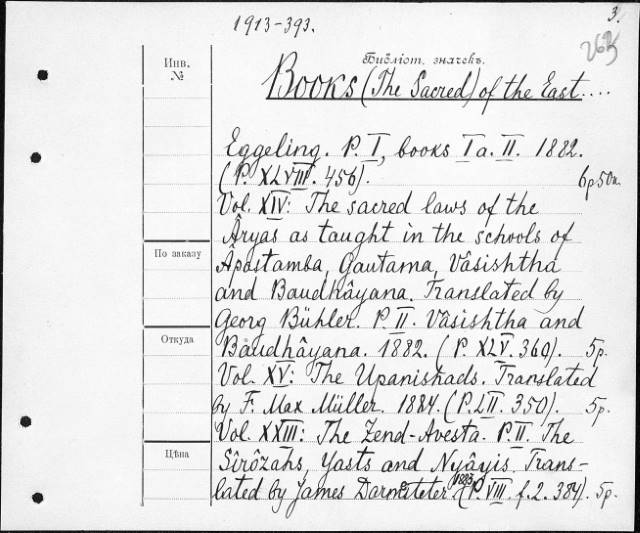 1913-393.
3.
263
Инв.
№
Библіот. значекъ.
Books (The Sacred) of the East....
Eggeling. P. I, books I a. II. 1882.
(P. XLVIII. 456). 6р50к.
Vol. XIV: The sacred laws of the
Âryas as taught in the schools of
По заказу
Âpastamba, Gautama, Vâsishtha
and Baudhâyana. Translated by
Georg Bühler. P. II. Vâsishtha and
Откуда
Baudhâyana. 1882. (P. XLV. 360). 5р.
Vol. XV: The Upanishads. Translated
by F. Max Müller. 1884. (P. LII. 350). 5р.
Vol. XXIII: The Zend-Avesta. P. II. The
Цѣна
Sîrôzahs, Yasts and Nyâyis. Trans-
lated by James Darmsteter. 1883. (P. VIII. f. 2. 384). 5р.